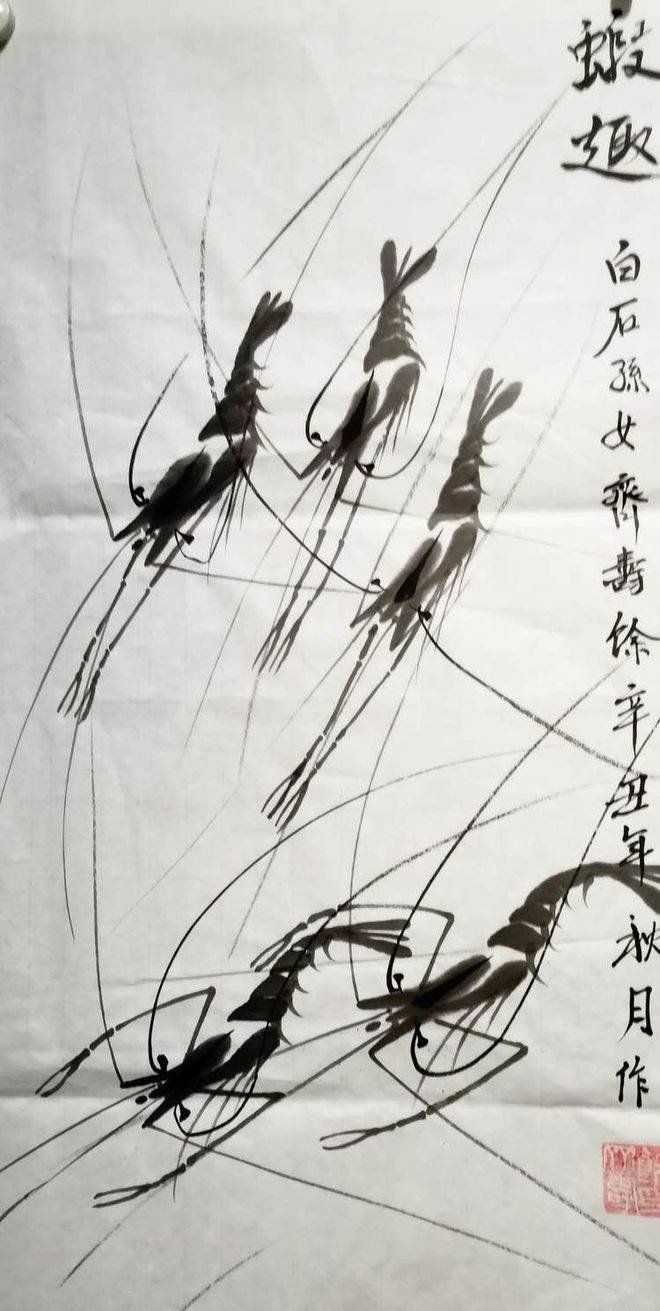 蝦趣
白石孫女齊壽餘辛丑年秋月作